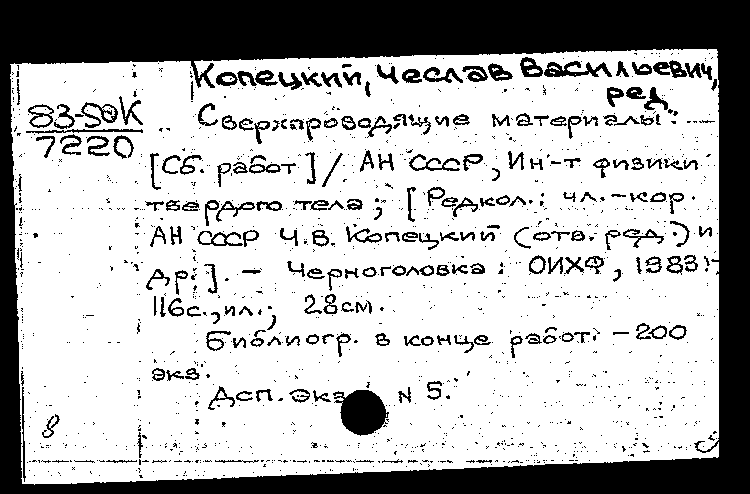 Копецкий, Чеслав Васильевич,
ред.
83-5ОК
7220
Сверхпроводящие материалы:
[Сб. работ] / АН СССР, Ин-т физики
твердого тела; [Редкол.: чл.-кор.
АН СССР Ч.В. Копецкий (отв. ред.) и
др.]. - Черноголовка: ОИХФ, 1983.-
116с., ил.; 28см.
Библиогр. в конце работ. - 200
экз.
Дсп. Экз. N 5.
8